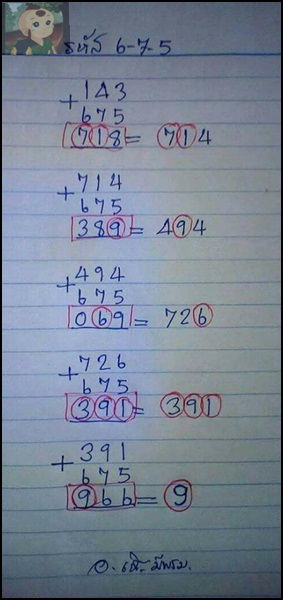 รหัส 6-7-5
+143
675
718 = 714
+714
675
389 = 494
+494
675
069 = 726
+726
675
391 = 391
+391
675
966 = 9